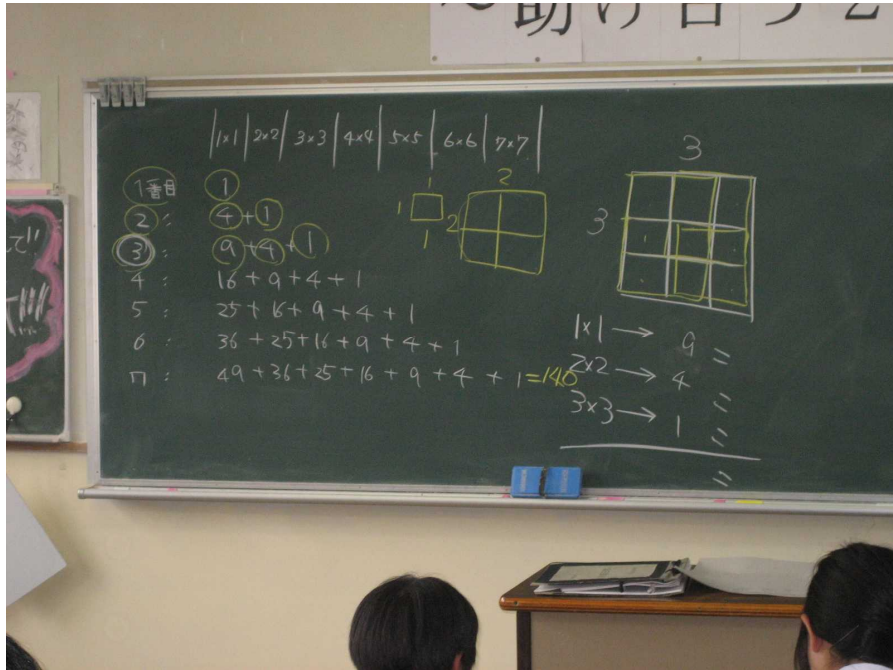 助け合う
|1×1|2×2|3×3|4×4|5×5|6×6|7×7|
1番目 1
2 : 4+1
3 : 9+4+1
4 : 16+9+4+1
5 : 25+16+9+4+1
6 : 36+25+16+9+4+1
7 : 49+36+25+16+9+4+1=140
1
1
1
2
2
3
3
1×1→9 〃
2×2→4 〃
3×3→1 〃
〃